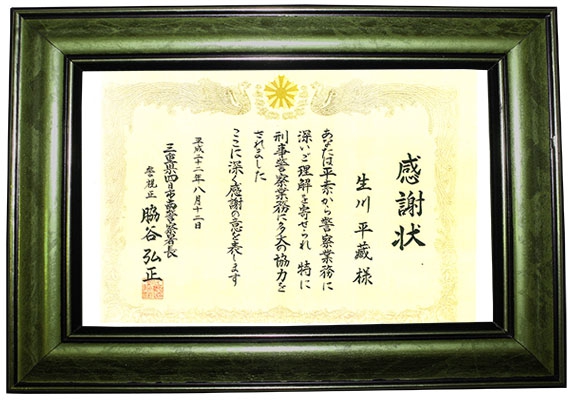 感謝状
生川平蔵様
あなたは平素から警察業務に
深いご理解を寄せられ特に
刑事警察業務に多大の協力を
されました
ここに深く感謝の意を表します
平成二十二年八月十二日
三重県四日市南警察署長
警視正 脇谷弘正